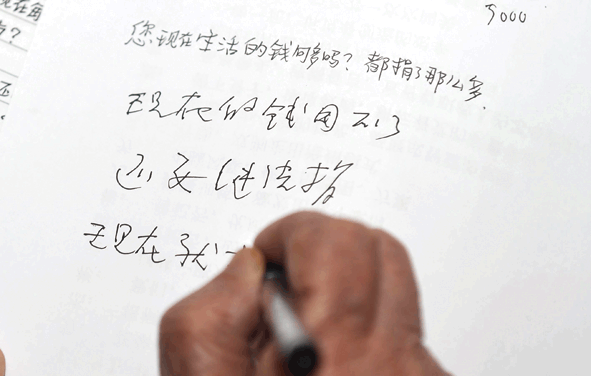 现在角
?
还
5000
您现在生活的钱够吗?都捐了那么多.
现在的钱用不了
还要继续捐
现在我一